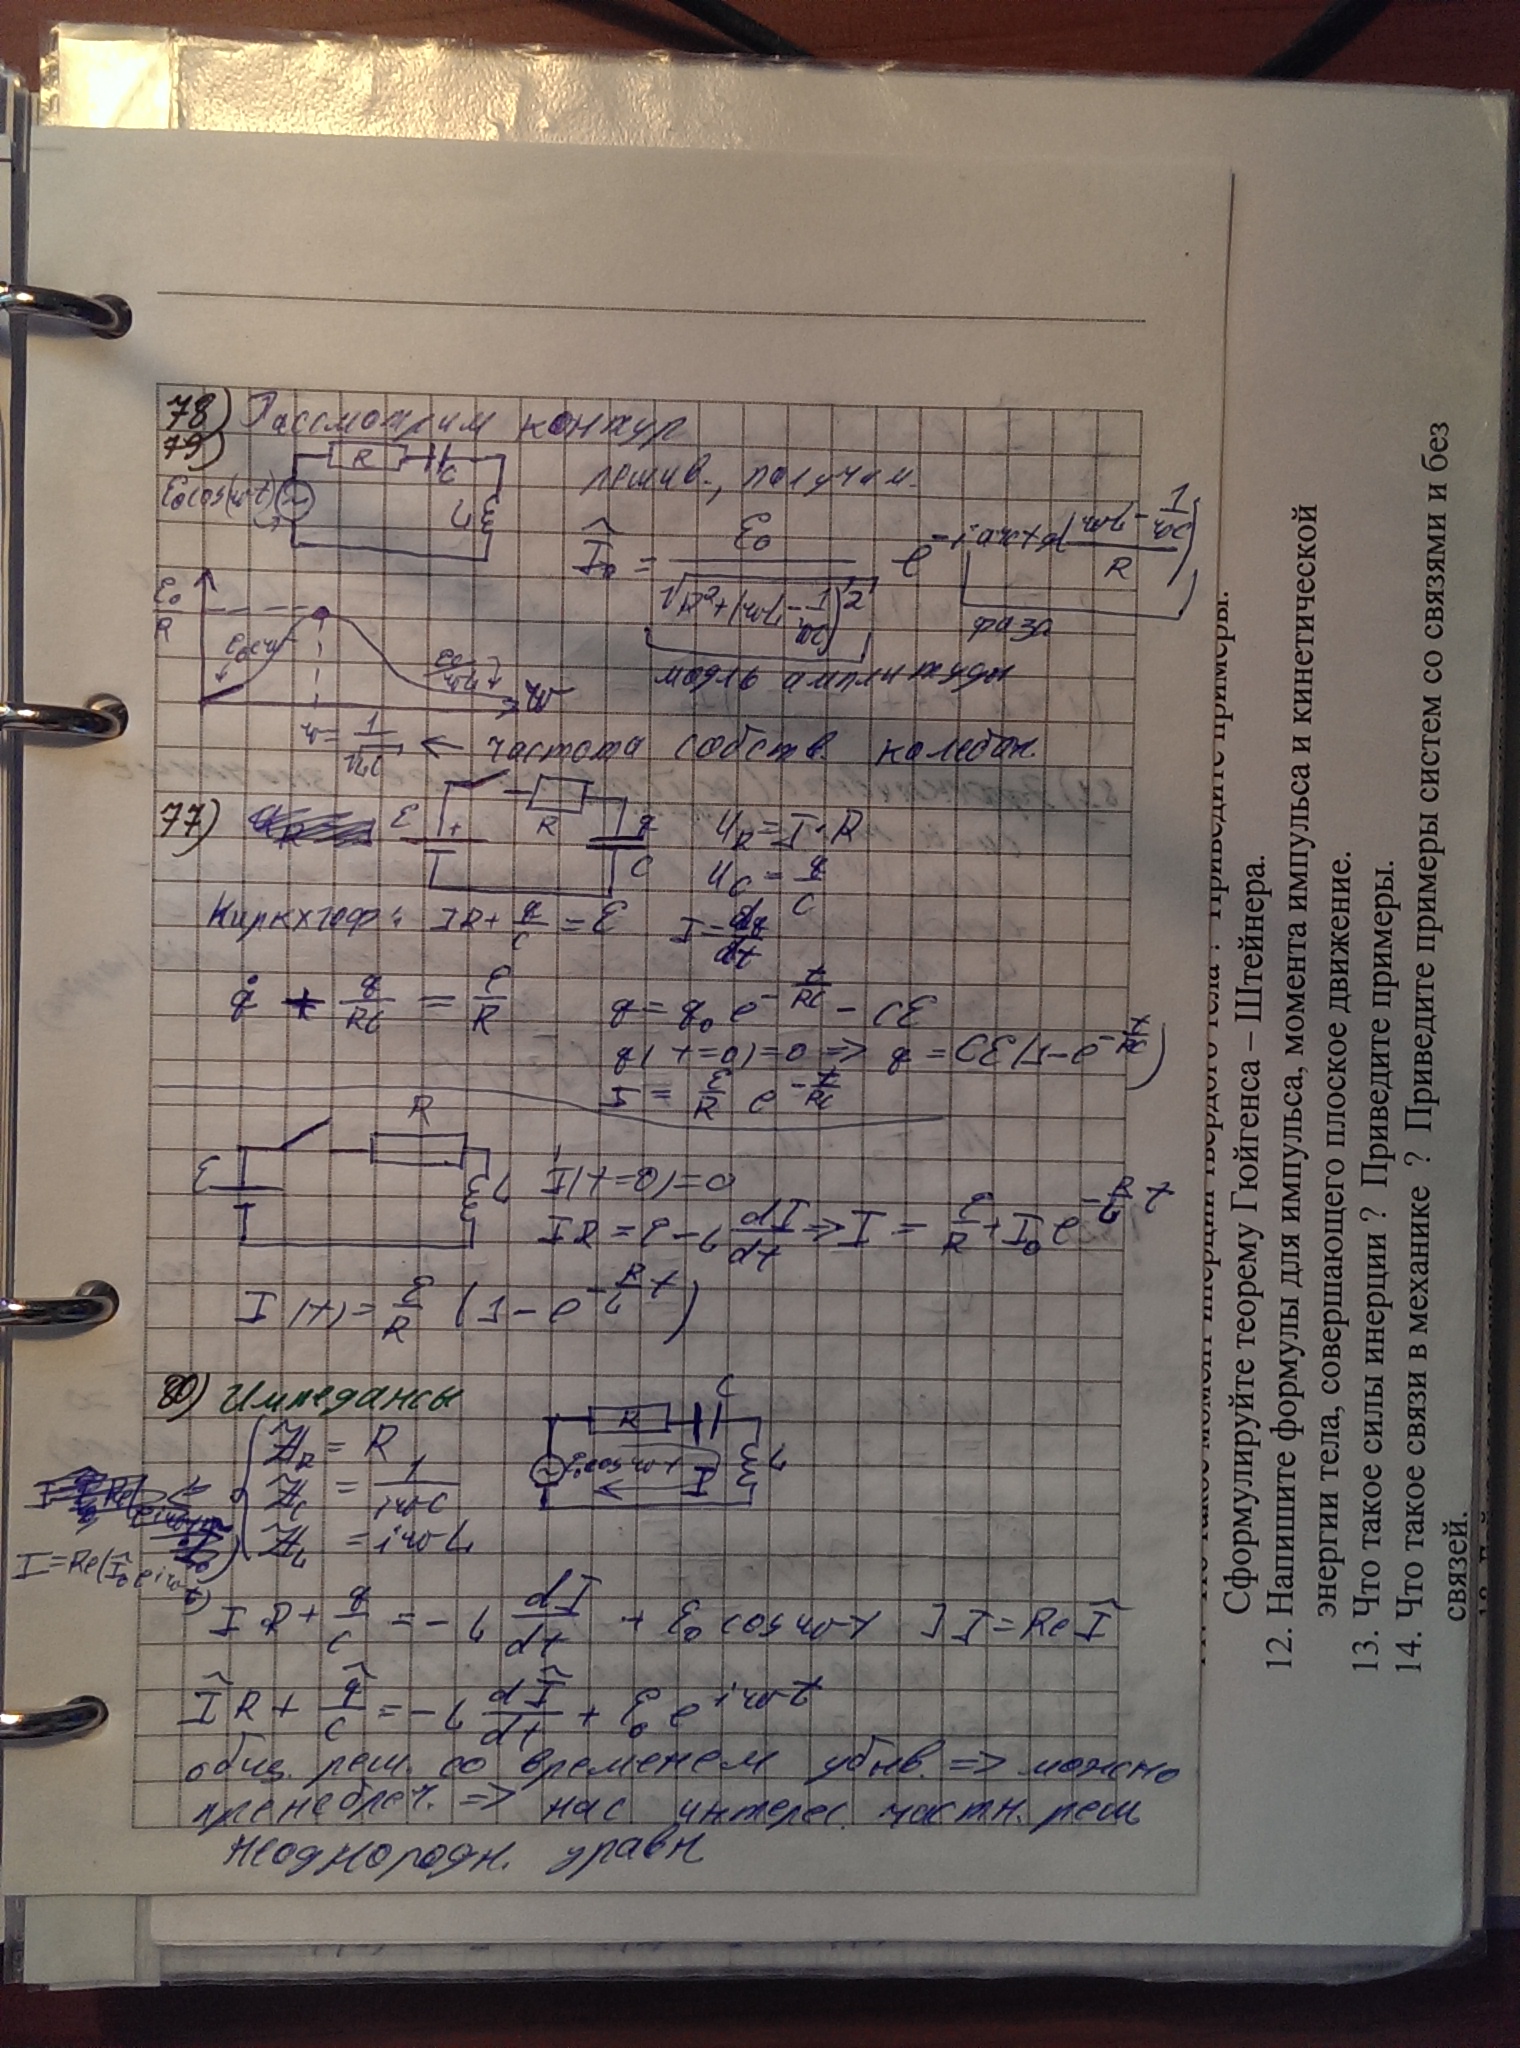 78) Рассмотрим контур
79)
R
C
L
ℰ₀cos(ωt)
решив., получим.
Î₀ = ℰ₀ / √(R²+(ωL-1/ωC)²) e^(-i arctg((ωL-1/ωC)/R))
фаза
модль амплитуды
ℰ₀/R
ℰ₀Cω
ℰ₀/ωL
ω
ω=1/√LC ← частота собств. колебан.
77) ℰ + R q C
U_R=I·R
U_C=q/C
Кирхгоф: IR+q/C=ℰ I=dq/dt
q̇ + q/RC = ℰ/R q=q₀e^(-t/RC) - Cℰ
q(t=0)=0 => q=Cℰ(1-e^(-t/RC))
I = ℰ/R e^(-t/RC)
R
ℰ L I(t=0)=0
IR=ℰ-L dI/dt => I = ℰ/R + I₀e^(-R/L t)
I(t)=ℰ/R (1-e^(-R/L t))
80) Импедансы
R C L
ℰ₀cosωt I
Z̃_R = R
Z̃_C = 1/iωC
Z̃_L = iωL
I=Re(Î₀e^(iωt))
IR+q/C=-L dI/dt + ℰ₀cosωt ] I=ReÎ
ÎR+q̂/C=-L dÎ/dt + ℰ₀e^(iωt)
общ. реш. со временем убыв. => можно
пренебреч. => нас интерес. частн. реш
неоднородн. уравн
Сформулируйте теорему Гюйгенса – Штейнера.
12. Напишите формулы для импульса, момента импульса и кинетической
энергии тела, совершающего плоское движение.
13. Что такое силы инерции ? Приведите примеры.
14. Что такое связи в механике ? Приведите примеры систем со связями и без
связей.